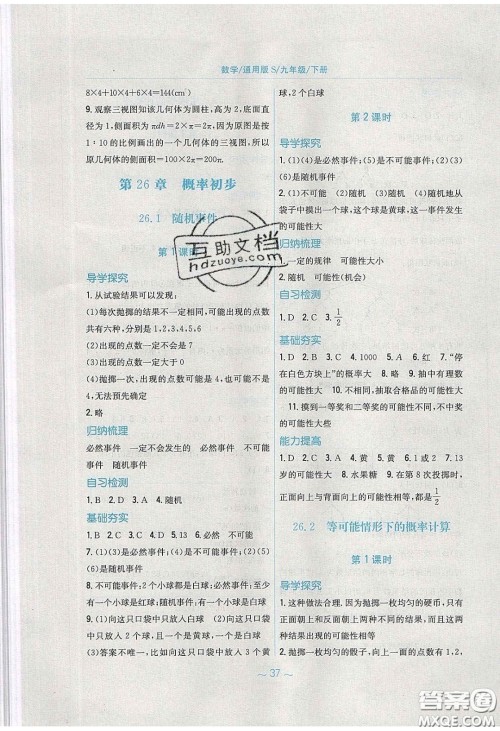 数学/通用版 S/九年级/下册
8×4+10×4+6×4=144(cm)
9. 观察三视图知该几何体为圆柱,高为 2,底面直
径为 1,侧面积为 πdh=2×π=2π,因为原图是按
1∶10 的比例画出的一个几何体的三视图,所以
原几何体的侧面积=100×2π=200π.
第 26 章 概率初步
26.1 随机事件
第 1 课时
导学探究
1. 从试验结果可以发现:
(1)每次抛掷的结果不一定相同,可能出现的点数
共有六种,分别是 1,2,3,4,5,6
(2)出现的点数一定不会是 7
(3)出现的点数一定大于 0
(4)抛掷一次,出现的点数可能是 4,也可能不是 4,
无法预先确定
2. 略
归纳梳理
必然事件 一定不会发生的 必然事件 不可能
事件 随机事件
自习检测
1. B 2. D 3. A 4. 随机
基础夯实
1. D 2. B 3. C 4. D 5. 必然 6. 不可能
7. (1)(3)(4)是必然事件;(2)是不可能事件;(5)
(6)是随机事件
8. 不可能事件:2 个小球都是白球;必然事件:至少
有一个小球是红球;随机事件:有一个小球是白球
9. (1)向这只口袋中放入 2 个白球 (2)向这只口袋
中只放入 2 个红球,或只放入一红一白 2 个小球
(3)答案不唯一,比如向这只口袋中放入 3 个黄
球,2 个白球
第 2 课时
导学探究
1. (1)(4)是必然事件;(5)是不可能事件;(2)(3)
(6)是随机事件
2. (1)不可能 (2)随机 (3)随机 (4)随机地从
袋子中摸出一个球,这个球是黄球,这一事件发生
的可能性大
归纳梳理
1. 一定的规律 可能性大小
2. 随机 可能性(机会)
自习检测
1. D 2. C 3. 1/2
基础夯实
1. D 2. B 3. C 4. 1000 5. A 6. 红 7. “停
在白色方块上”的概率大 8. 略 9. 抽中有理数
的可能性大 10. 不相同,抽取合格品的可能性大
11. 摸到一等奖和二等奖的可能性不同,不中奖的
可能性大
能力提高
1. D 2. C 3. A 4. 黄 5. 黄 6. 1 或 2 7. 13
岁的可能性大 8. 水果糖 9. 在第 8 次投掷时,
正面向上与背面向上的可能性相等,都是1/2
26.2 等可能情形下的概率计算
第 1 课时
导学探究
1. 这种做法合理. 因为抛掷一枚均匀的硬币,只有
正面朝上和反面朝上两种可能的结果,并且这两
种结果出现的可能性相等
2. 抛掷一枚均匀的骰子,向上一面的点数有 1,2,
~ 37 ~
互助文档
hdzuoye.com
答案圈
MXQE.COM